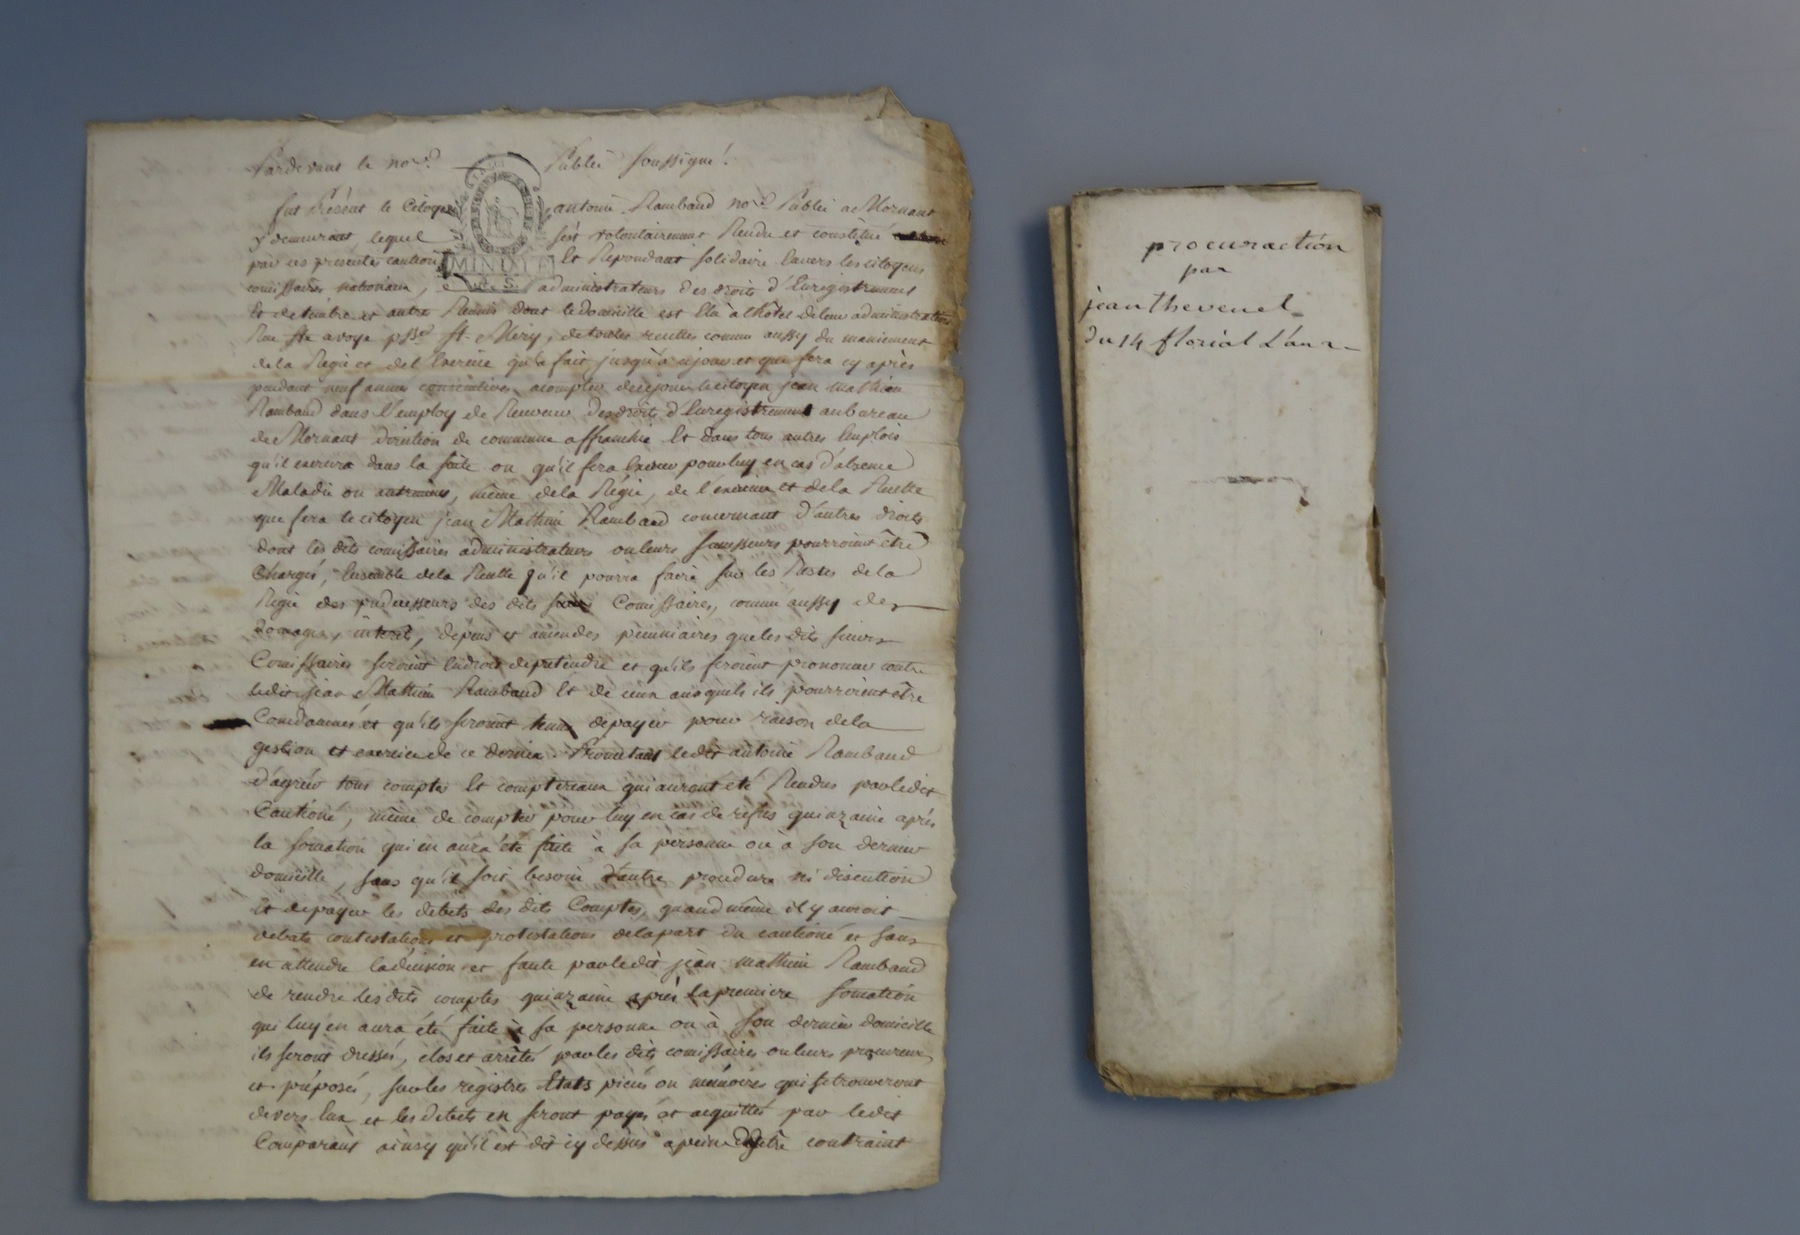 Pardevant le no.re Public soussigné.
fut Présent le Citoyen antoine Rambaud no.re Public a Mornant
y demeurant, lequel s'est volontairement Rendu et constitué
par ces presentes caution Et Répondant solidaire Envers les citoyens
comissaires nationaux, administrateurs des droits d'Enregistrement
MINUTE
Et de timbre et autres Réunis dont le domicille est Elû à l'hôtel de leur administration
Rue Ste avoye psse St. Mery, de toutes recettes comme aussy du maniement
de la Régie et de l'Exercice qu'a fait jusqu'à ce jour et que fera cy après
pendant neuf années consécutives, a compter de ce jour le citoyen jean mathieu
Rambaud dans l'employ de Receveur des droits d'Enregistrement au bureau
de Mornant direction de commune affranchie Et dans tous autres Emplois
qu'il exercera dans la suite ou qu'il fera Exercer pour luy en cas d'absence
Maladie ou autrement, même de la Régie, de l'exercice et de la Recette
que fera le citoyen jean Mathieu Rambaud concernant d'autres droits
dont les dits comissaires administrateurs ou leurs successeurs pourroient être
Chargés, Ensemble de la Recette qu'il pourra faire sur les Restes de la
Régie des prédécesseurs des dits Comissaires, comme aussy des
domages, interêt, dépens et amendes pécuniaires que les dits
Comissaires seroient En droit de prétendre et qu'ils feroient prononcer contre
ledit jean Mathieu Rambaud Et de ceux auxquels ils pourroient être
Condamnés et qu'ils seroient tenus de payer pour raison de la
gestion et exercice de ce dernier. Promettant ledit antoine Rambaud
d'agréer tous comptes Et comptereaux qui auront été Rendus par ledit
Cautioné, même de compter pour luy en cas de refus quinzaine après
la somation qui en aura été faite à sa personne ou à son dernier
domicille, sans qu'il soit besoin d'autre procedure ni discution
et de payer les debets des dits Comptes, quand même il y auroit
debats contestations et protestations de la part du cautioné et sans
en attendre la décision et faute par ledit jean mathieu Rambaud
de rendre les dits comptes quinzaine après la premiere somation
qui luy en aura été faite à sa personne ou à son dernier domicille
ils seront dressés, clos et arrêtés par les dits comissaires ou leurs procureurs
et préposés, sur les registres Etats pieces ou mémoires qui se trouveront
devers Eux et les debets en seront payés et acquittés par ledit
Comparant ainsy qu'il est dit cy dessus a peine d'y être contraint
procuraction
par
jean thevenet
du 14 florial L'an 2